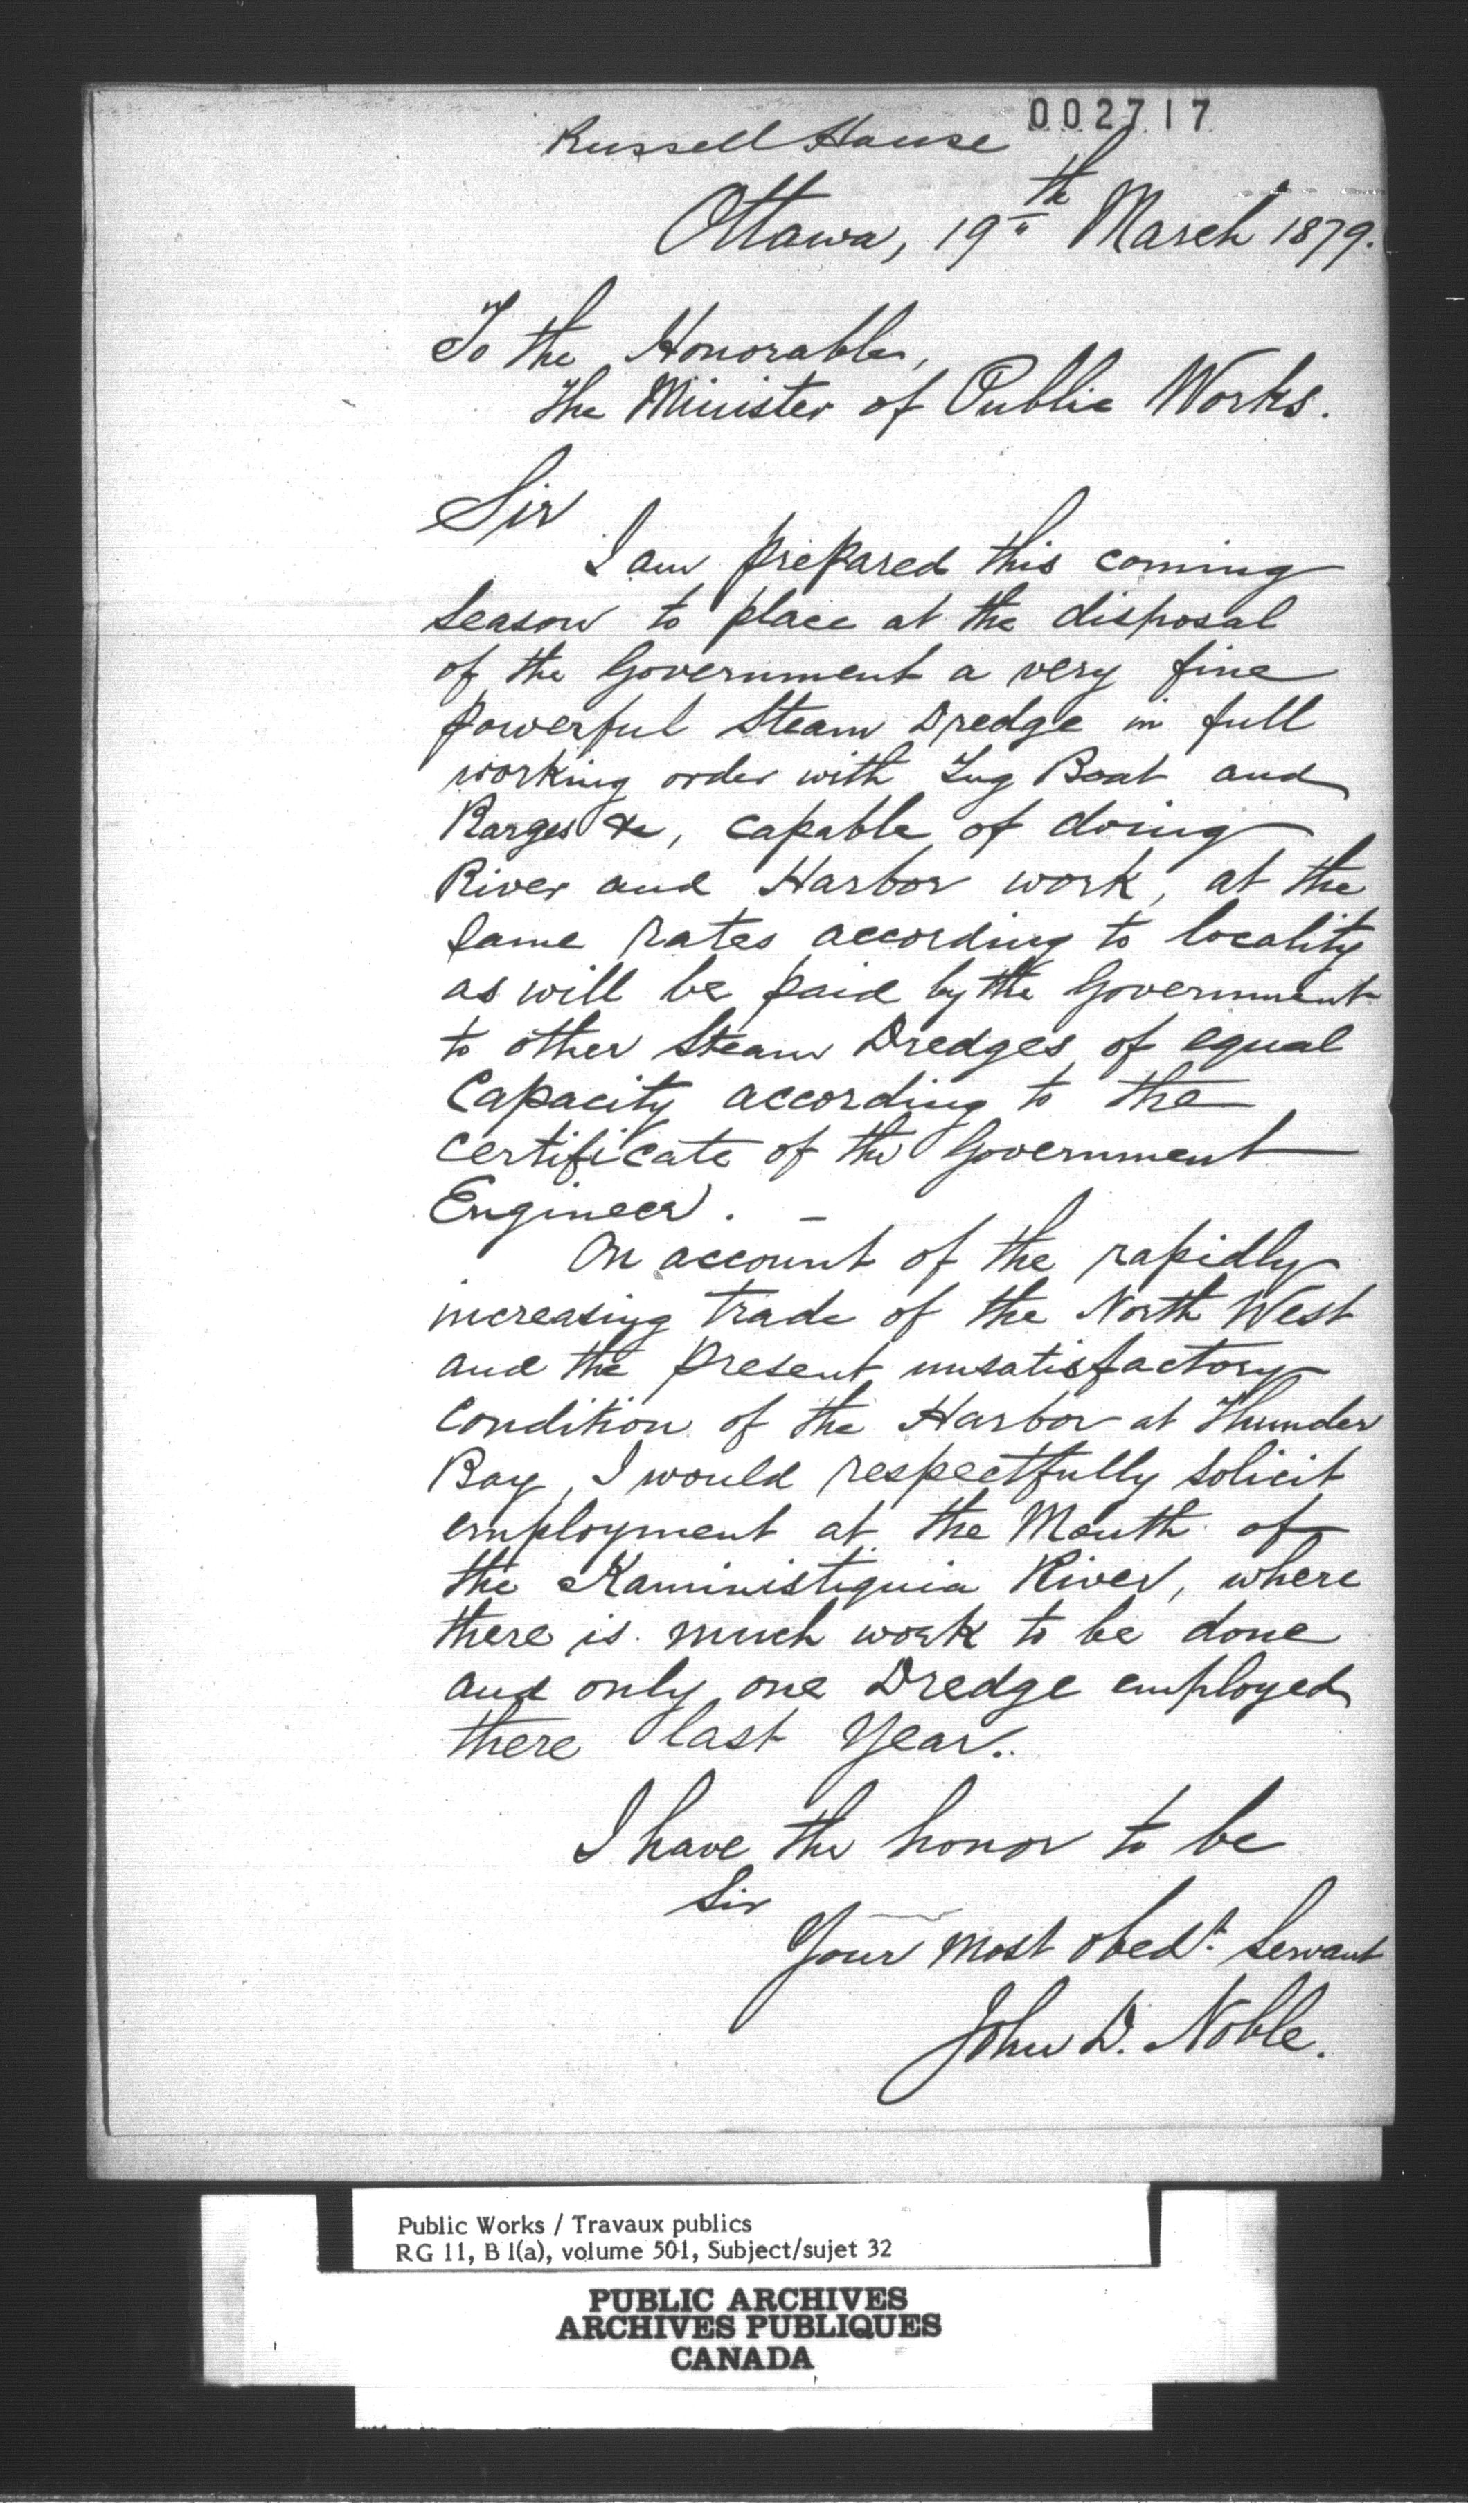 002717
Russell House
Ottawa, 19th March 1879.
To the Honorable,
The Minister of Public Works.
Sir
I am prepared this coming
season to place at the disposal
of the Government a very fine
powerful Steam Dredge in full
working order with Tug Boat and
Barges &c, capable of doing
River and Harbor work, at the
same rates according to locality
as will be paid by the Government
to other Steam Dredges of equal
Capacity according to the
certificate of the Government
Engineer. —
On account of the rapidly
increasing trade of the North West
and the present unsatisfactory
condition of the Harbor at Thunder
Bay, I would respectfully solicit
employment at the Mouth of
the Kaministiquia River, where
there is much work to be done
and only one Dredge employed
there last Year.
I have the honor to be
Sir
Your most obedt. Servant
John D. Noble.
Public Works / Travaux publics
RG 11, B 1(a), volume 501, Subject/sujet 32
PUBLIC ARCHIVES
ARCHIVES PUBLIQUES
CANADA